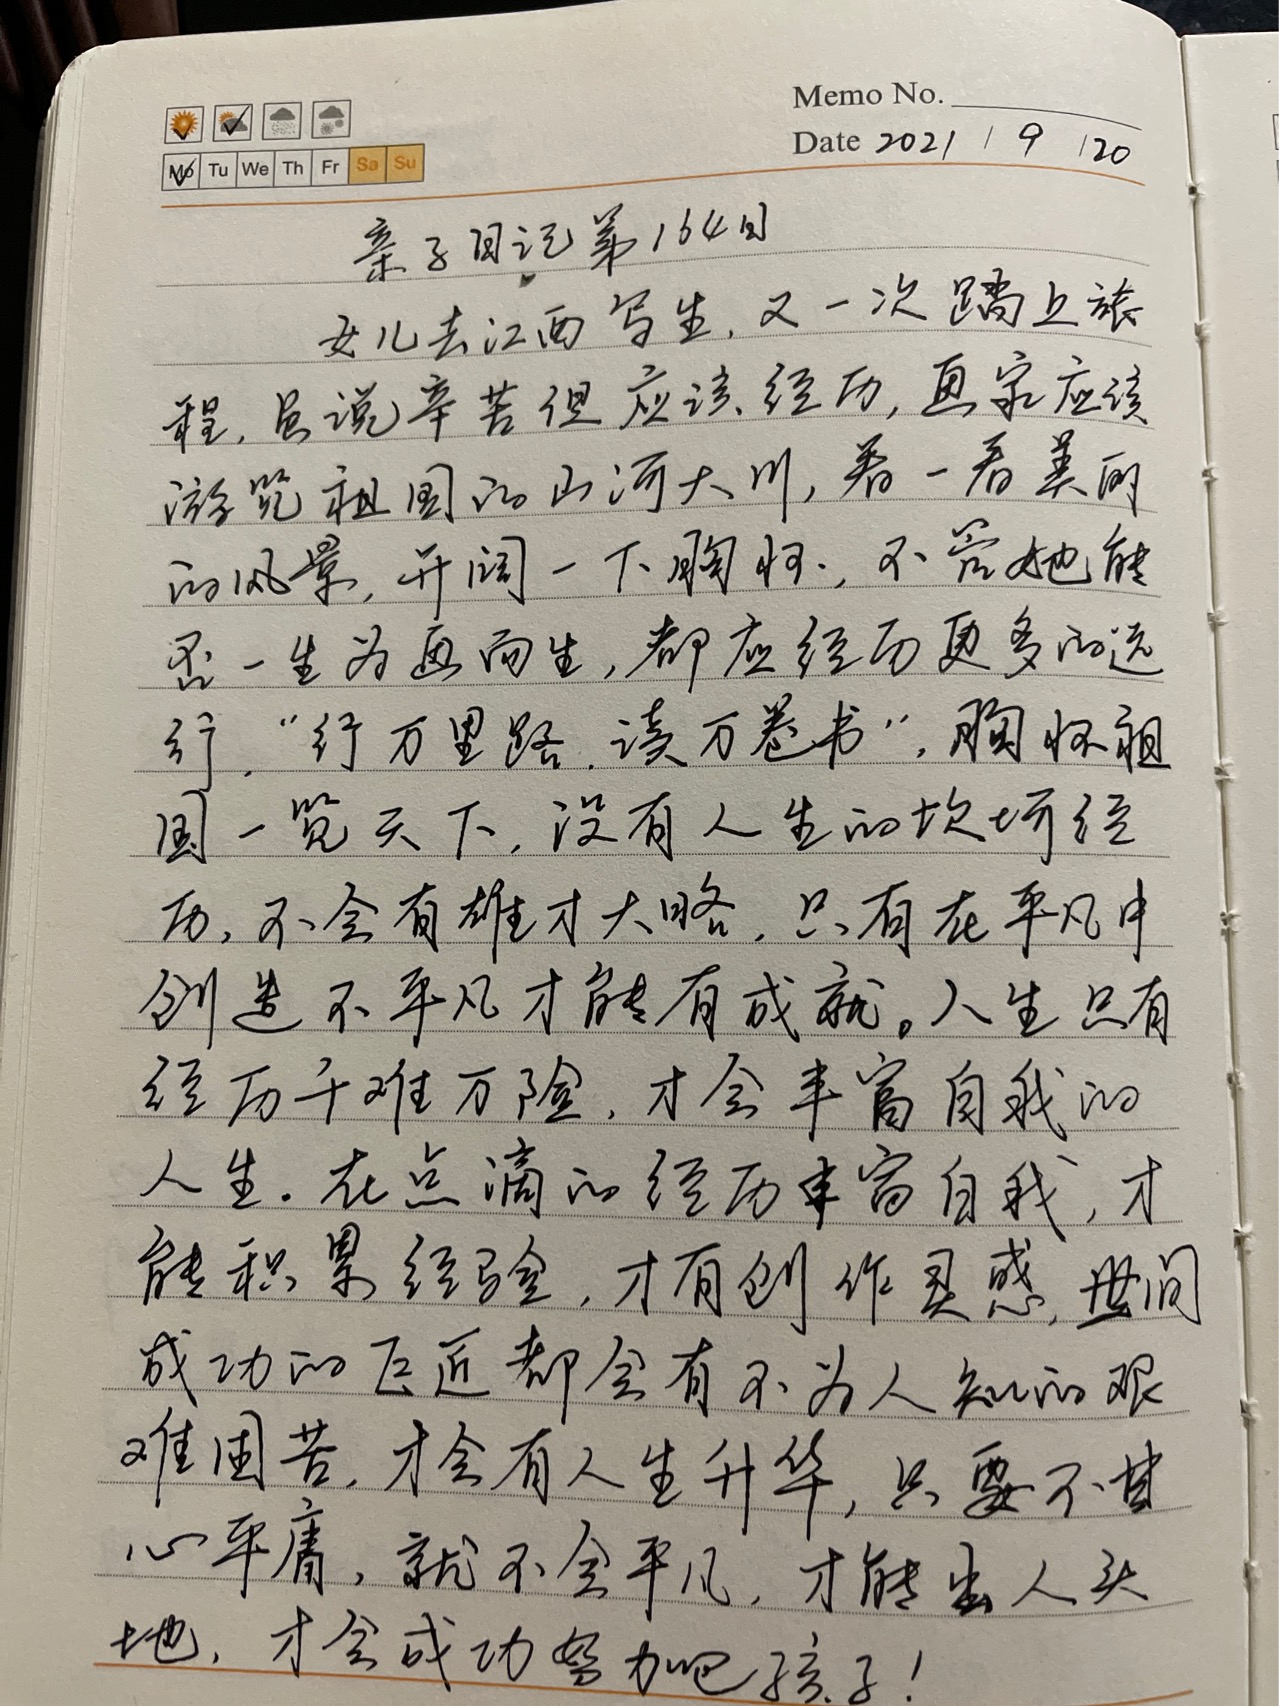 Memo No.
Date 2021 / 9 / 20
Mo Tu We Th Fr Sa Su
亲子日记第164日
女儿去江西写生,又一次踏上旅
程,虽说辛苦但应该经历,画家应该
游览祖国的山河大川,看一看美丽
的风景,开阔一下胸怀,不管她能
否一生为画而生,都应经历更多的远
行,“行万里路.读万卷书”,胸怀祖
国一览天下,没有人生的坎坷经
历,不会有雄才大略,只有在平凡中
创造不平凡才能有成就。人生只有
经历千难万险,才会丰富自我的
人生。在点滴的经历丰富自我,才
能积累经验,才有创作灵感,世间
成功的巨匠都会有不为人知的艰
难困苦,才会有人生升华,只要不甘
心平庸,就不会平凡,才能出人头
地,才会成功努力吧孩子!